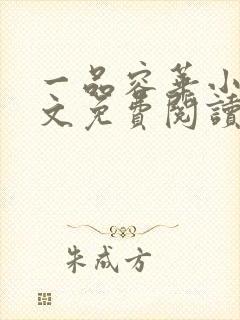 一品容华小
文免費閱讀
朱成方